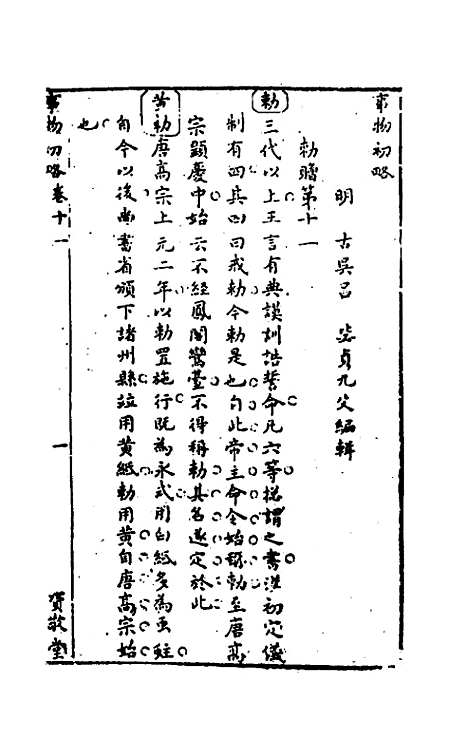 事物初略
明 古吳呂 毖貞九父編輯
勅贈第十一
勅三代以上王言有典謨訓誥誓命凡六等總謂之書漢初定儀
制有四其四曰戒勅今勅是也自此帝王命令始稱勅至唐高
宗顯慶中始云不經鳳閣鸞臺不得稱勅其名遂定於此
黃勅唐高宗上元二年以勅置施行既為永式用白紙多為虫蛀
自今以後尚書省頒下諸州縣竝用黃紙勅用黃自唐高宗始
也
事物初略卷十一 一 寶敬堂